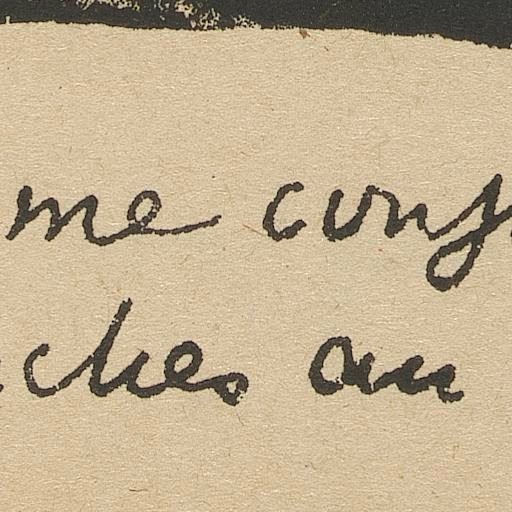 me conf
ches au